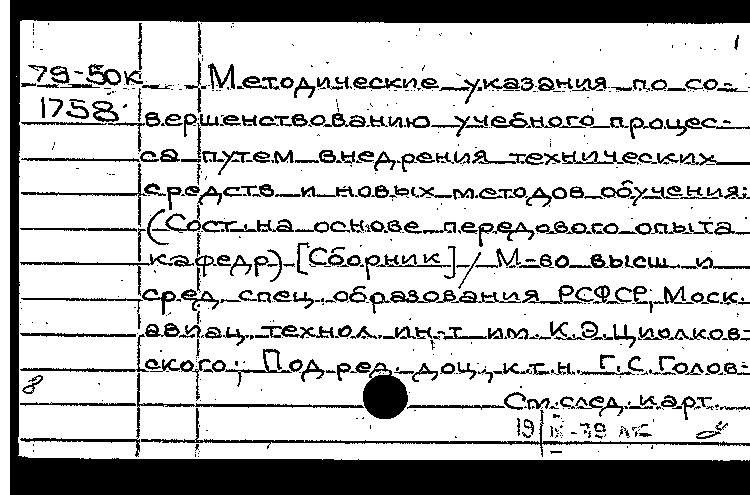 79-50к Методические указания по со-
1758 вершенствованию учебного процес-
са путем внедрения технических
средств и новых методов обучения:
(Сост. на основе передового опыта
кафедр) [Сборник] / М-во высш. и
сред. спец. образования РСФСР, Моск.
авиац. технол. ин-т им. К.Э.Циолков-
ского; Под ред. доц., к.т.н. Г.С.Голов-
8
См. след. карт.
19